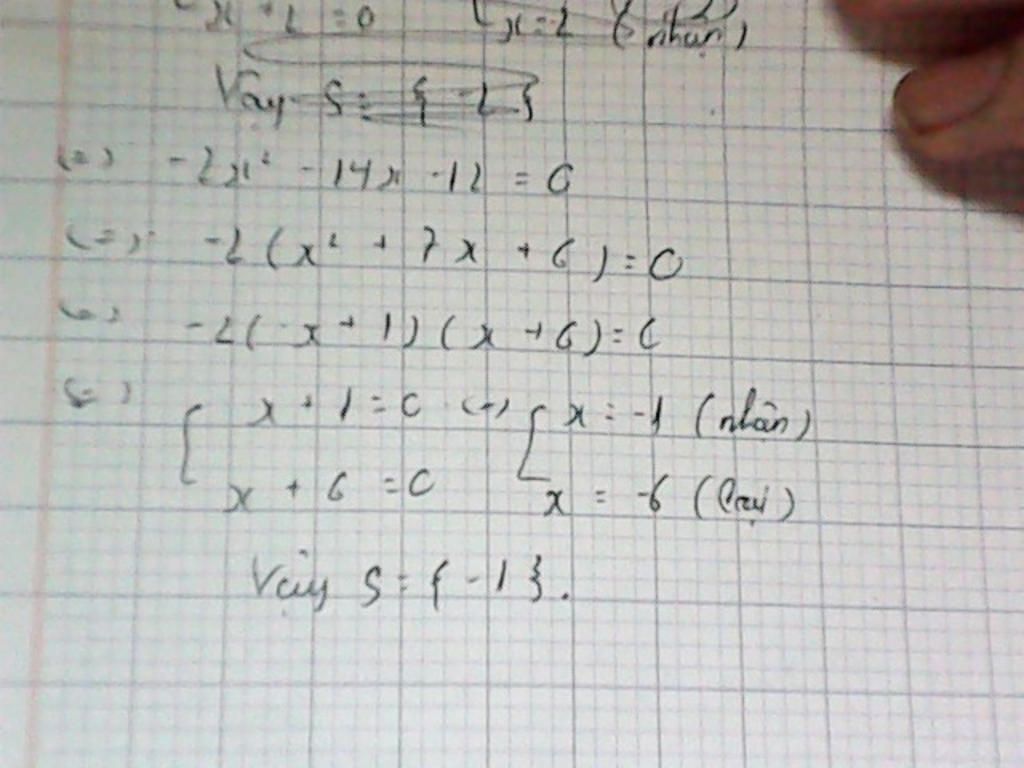 x + 2 = 0 [ x = -2 (nhận)
Vậy S = { -2 }
<=> -2x² - 14x - 12 = 0
<=> -2(x² + 7x + 6) = 0
<=> -2(x + 1)(x + 6) = 0
<=> [ x + 1 = 0 <=> [ x = -1 (nhận)
x + 6 = 0 x = -6 (loại)
Vậy S = { -1 }.